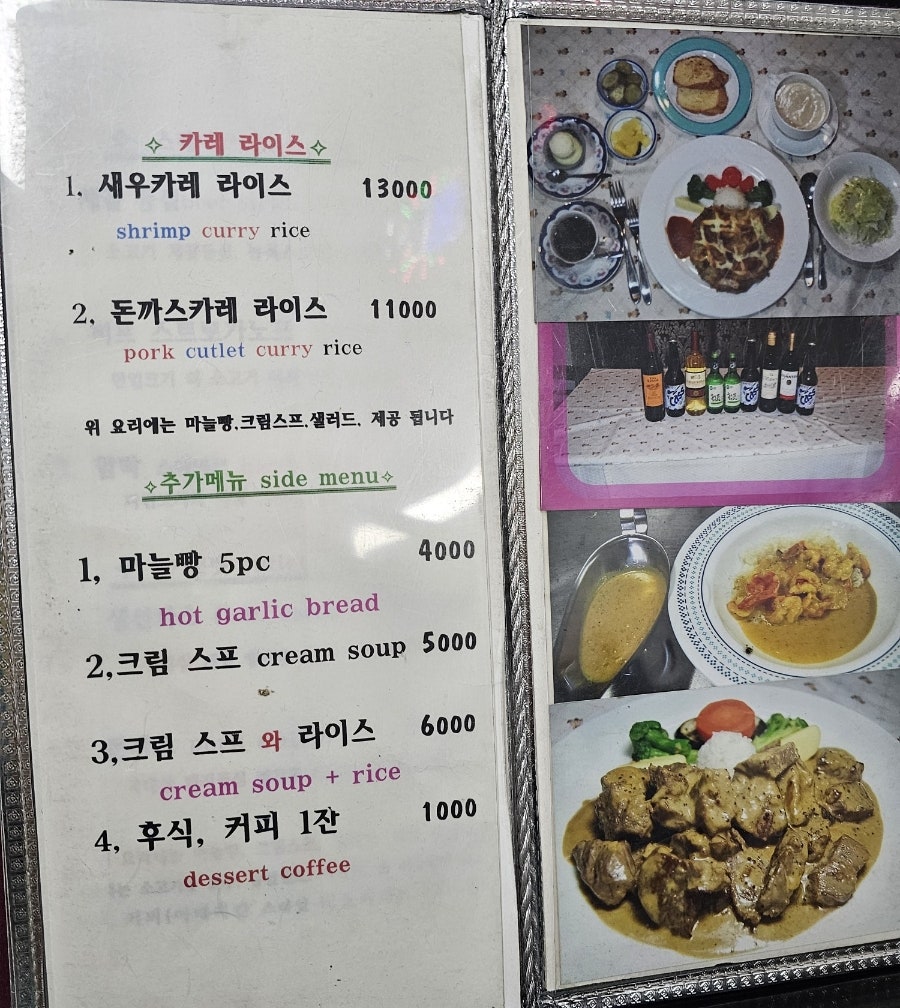 ✧ 카레 라이스 ✧
1. 새우카레 라이스 13000
shrimp curry rice
2. 돈까스카레 라이스 11000
pork cutlet curry rice
위 요리에는 마늘빵,크림스프,샐러드, 제공 됩니다
✧추가메뉴 side menu✧
1, 마늘빵 5pc 4000
hot garlic bread
2,크림 스프 cream soup 5000
3,크림 스프 와 라이스 6000
cream soup + rice
4, 후식, 커피 1잔 1000
dessert coffee